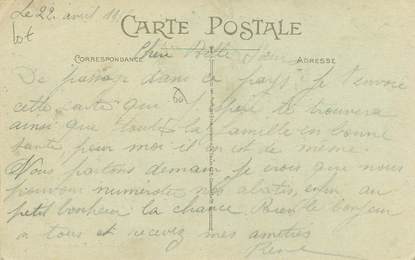 Le 22 avril 11
lot
CARTE POSTALE
CORRESPONDANCE
ADRESSE
Chère Belle Sœur
De passage dans ce pays je t'envoie
cette carte qui j'espère te trouvera
ainsi que toute la famille en bonne
santé pour moi il en est de même.
Nous partons demain je crois que nous
pouvons numeroter nos abatis, enfin au
petit bonheur la chance Bien le bonjour
a tous et recevez mes amitiés
René